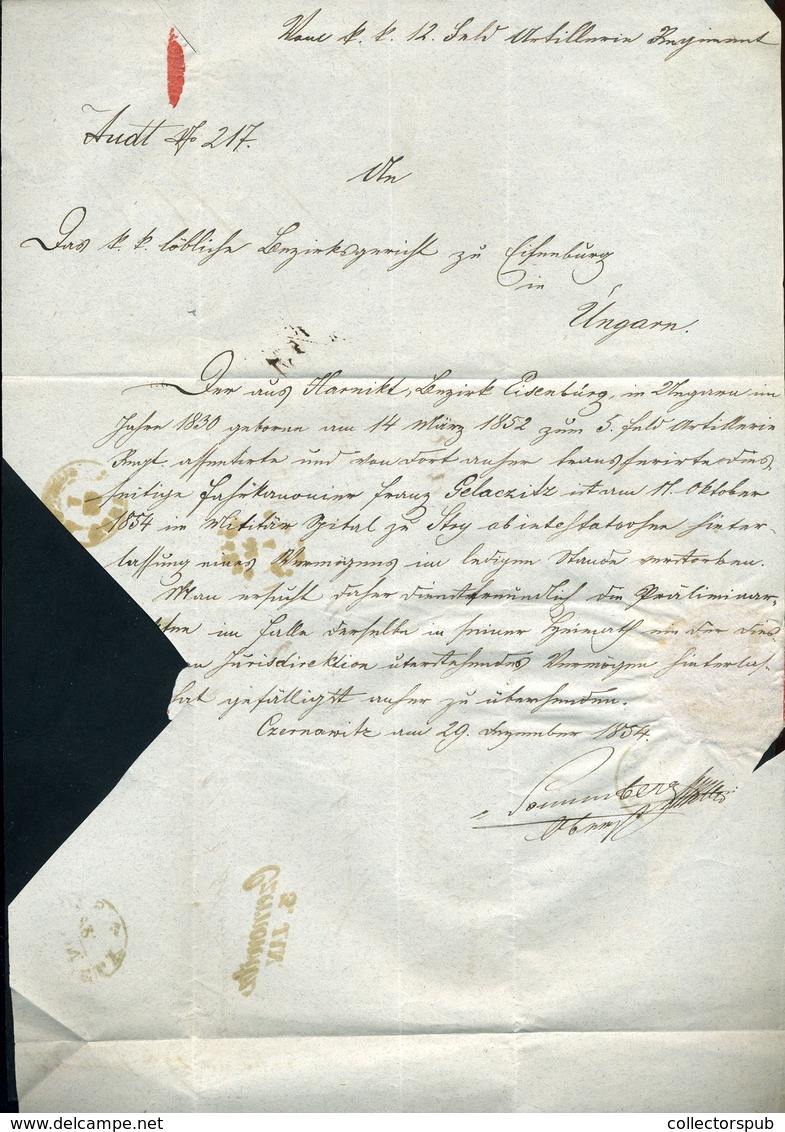 Vom k. k. 12. Feld Artillerie Regiment
Audt No 217.
An
Das k. k. löbliche Bezirksgericht zu Eisenburg
in
Ungarn.
Der aus Harnikt, Bezirk Eisenburg, in Ungarn im
Jahre 1830 geborne am 14 März 1852 zum 5. Feld Artillerie
Regt. assentirte und von dort anher transferirte dies
seitige Fahrkanonier Franz Gelaczitz ist am 11. Oktober
1854 im Militär Spital zu Stry ab intestato ohne Hinter-
lassung eines Vermögens im ledigen Stande verstorben.
Man ersucht daher dienstfreundlich die Präliminar-
akten im Falle derselbe in seiner Heimath ein der dies
Jurisdirektion unterstehendes Vermögen hinterlas-
hat gefälligst anher zu übersenden.
Czernowitz am 29. Dezember 1854.
Oberst
Czernowitz
3. JAN
collectorspub.com